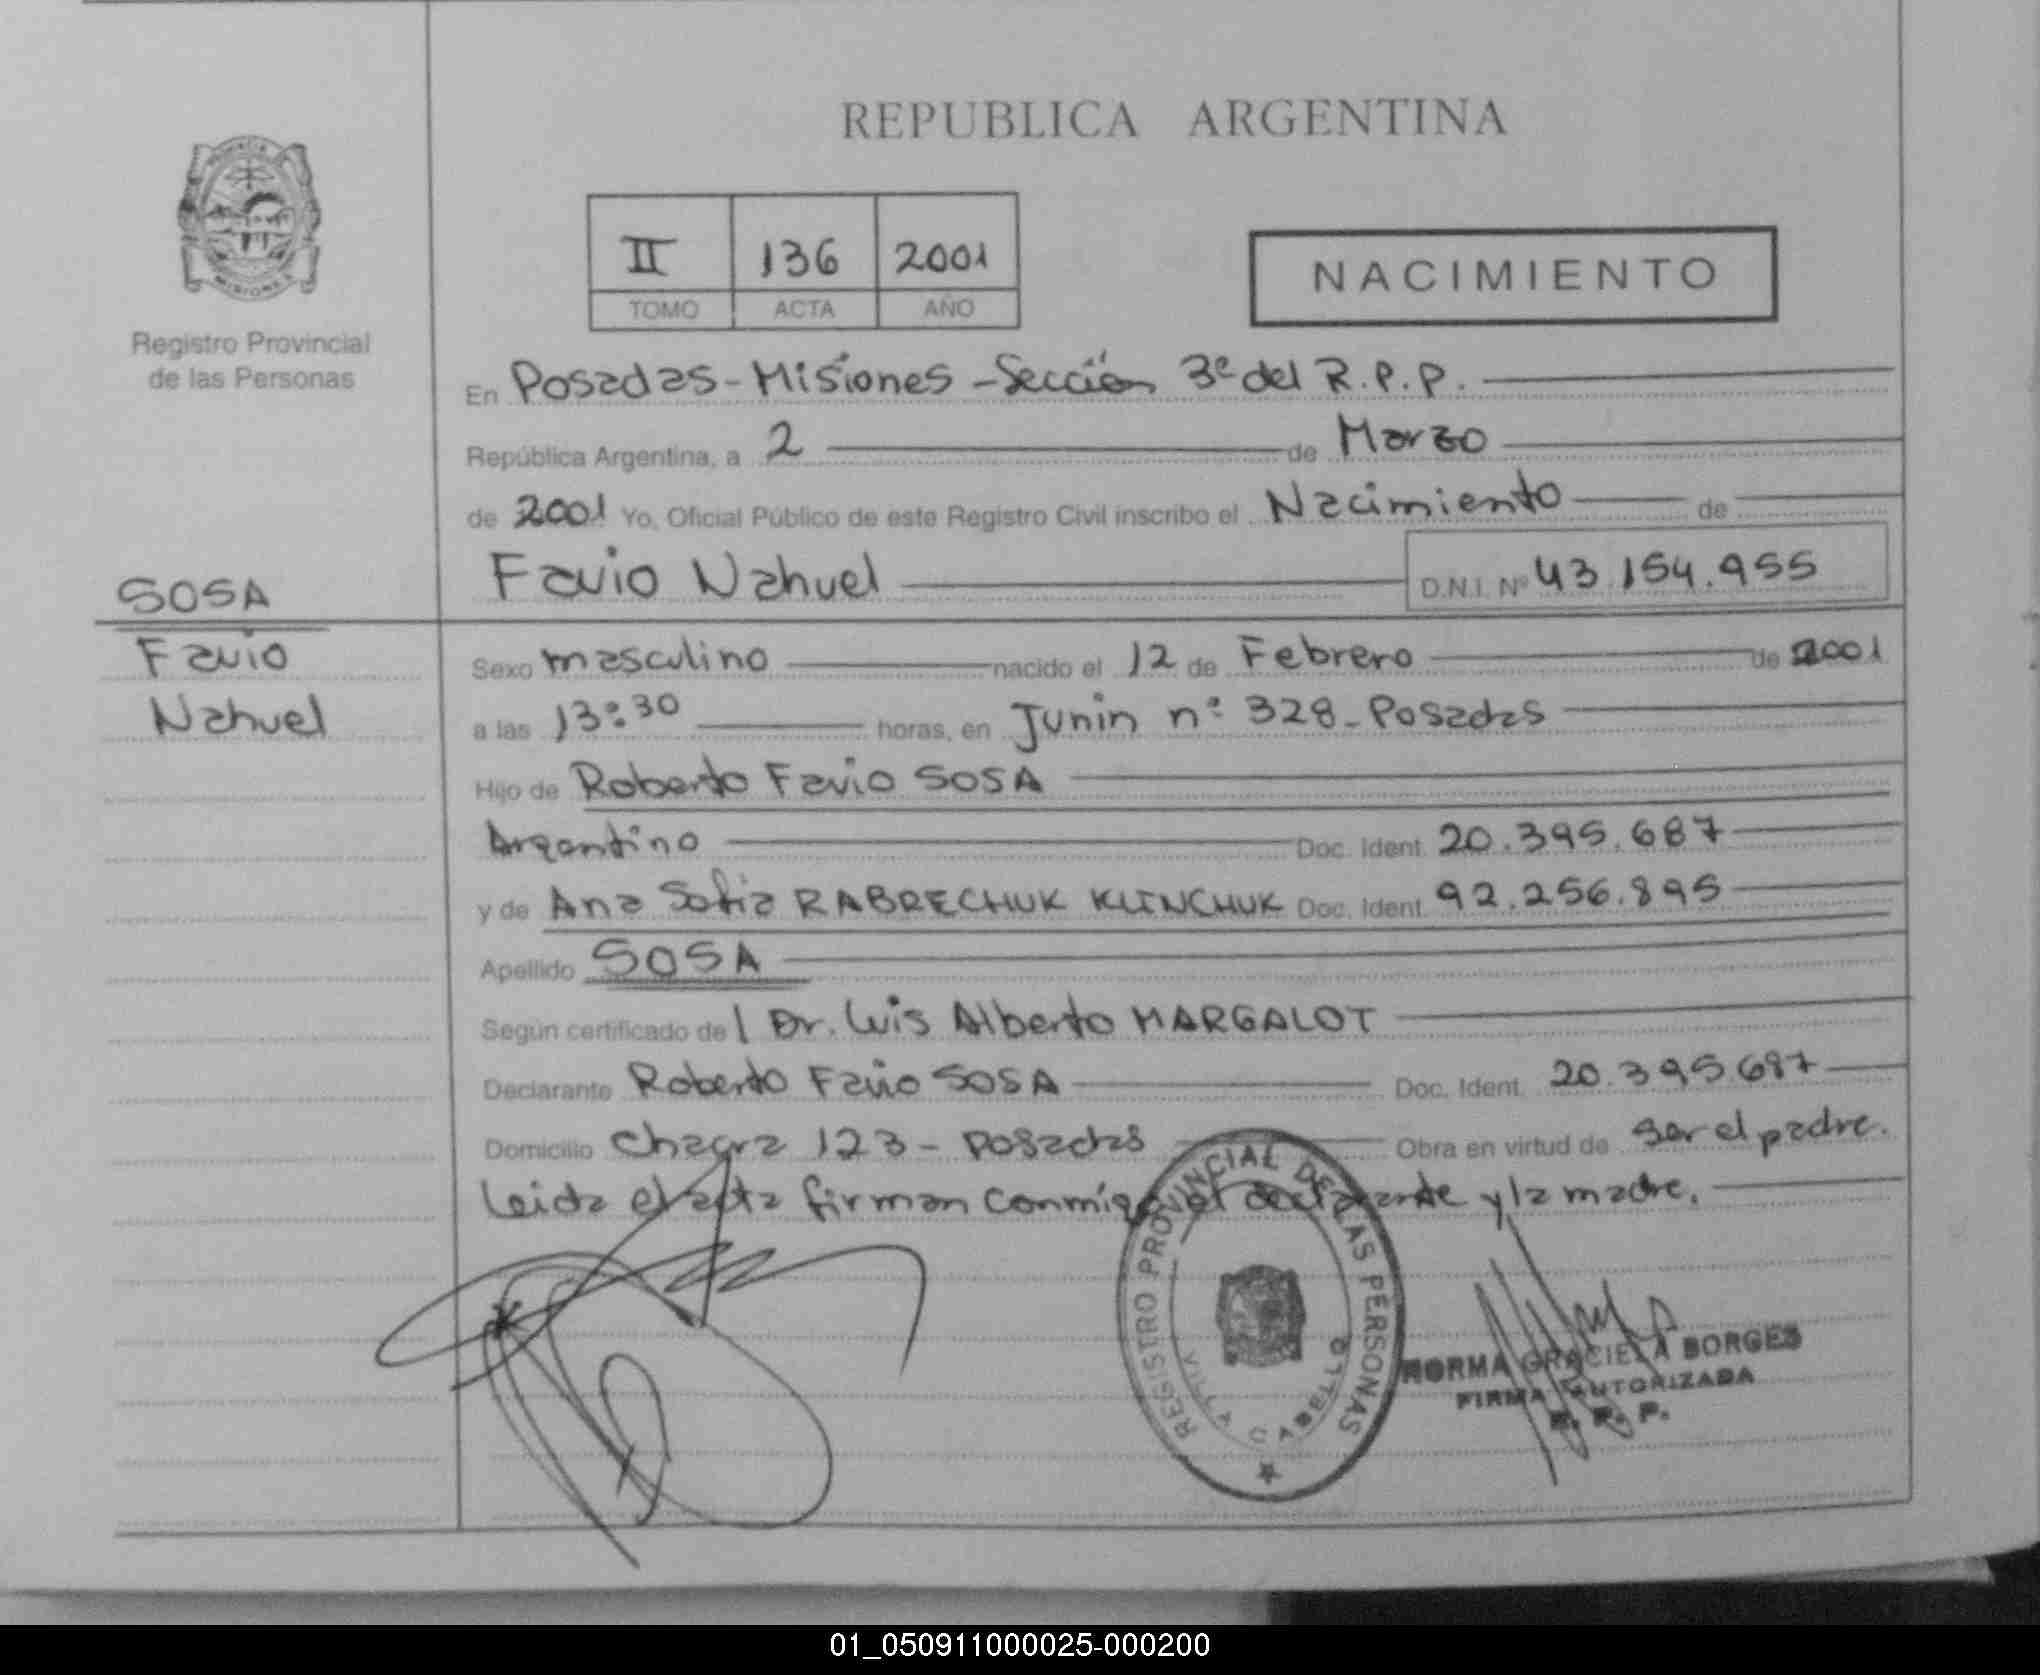 REPUBLICA ARGENTINA
PROVINCIA
MISIONES
Registro Provincial
de las Personas
II 136 2001
TOMO ACTA AÑO
NACIMIENTO
En Posadas-Misiones-Sección 3ª del R.P.P.
República Argentina, a 2 de Marzo
de 2001 Yo, Oficial Público de este Registro Civil inscribo el Nacimiento de
Favio Nahuel D.N.I. Nº 43.154.955
SOSA
Favio
Nahuel
Sexo masculino nacido el 12 de Febrero de 2001
a las 13:30 horas, en Junin nº 328-Posadas
Hijo de Roberto Favio SOSA
Argentino Doc. Ident. 20.395.687
y de Ana Sofia RABRECHUK KLINCHUK Doc. Ident. 92.256.895
Apellido SOSA
Según certificado de/ Dr. Luis Alberto MARGALOT
Declarante Roberto Favio SOSA Doc. Ident. 20.395.687
Domicilio Chacra 123-Posadas Obra en virtud de ser el padre.
Leida el acta firman conmigo el declarante y la madre.
REGISTRO PROVINCIAL DE LAS PERSONAS
VILLA CABELLO
NORMA GRACIELA BORGES
FIRMA AUTORIZADA
R. P. P.
01_050911000025-000200